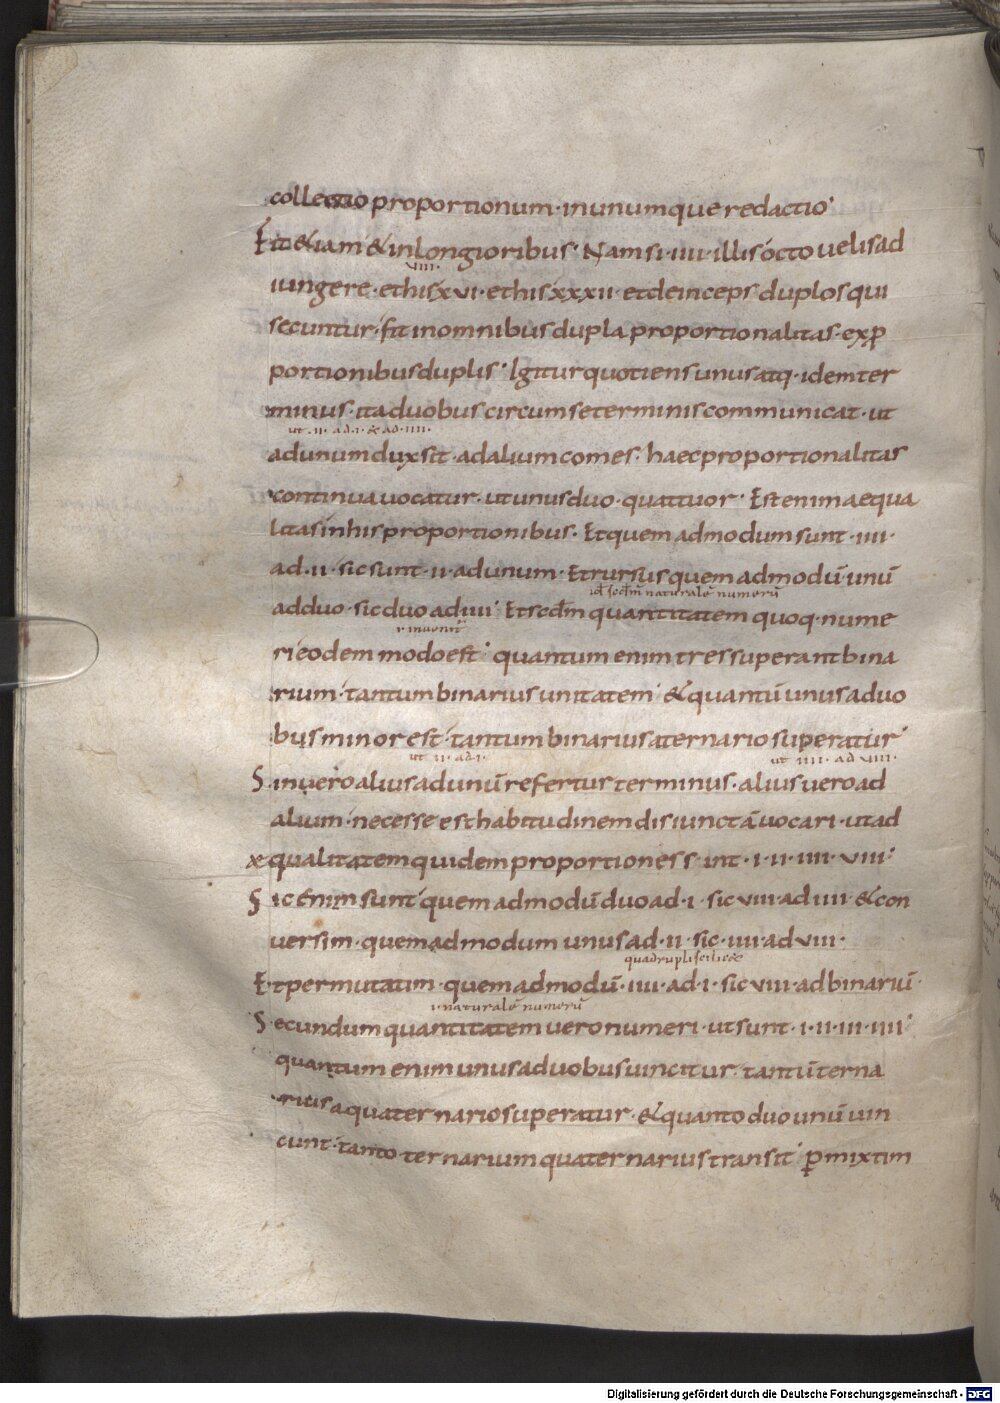 collectio proportionum· inunumque redactio·
Fit &iam & inlongioribus· Nam si· iiii· illis octo uelis ad
viii·
iungere· et his xvi· et his xxxii· et deinceps duplos qui
secuntur· fit in omnibus dupla proportionalitas· ex p̱
portionibus duplis· Igitur quotiens unus atq· idem ter
minus· ita duobus circum se terminis communicat· ut
ut· ii· ad· i· & ad· iiii·
ad unum dux sit· ad alium comes· haec proportionalitas
continua uocatur· ut unus duo· quattuor· Est enim aequa
litas in his proportionibus· Et quem ad modum sunt· iiii·
ad· ii· sic sunt· ii· ad unum· Et rursus quem ad modū unū
id̄ sc̄dm naturalē numerū
ad duo· sic duo ad iiii· Et secd̄m quantitatem quoq· nume
r inuenit̄
ri eodem modo est· quantum enim tres superant bina
rium· tantum binarius unitatem· & quantū unus a duo
bus minor est· tantum binarius a ternario superatur·
ut ii· ad· i· ut iiii· ad viii·
Sin uero alius ad unū refertur terminus· alius uero ad
alium· necesse est habitudinem disiunctā uocari· ut ad
æqualitatem quidem proportiones sint· i· ii· iiii· viii·
Sic enim sunt quem ad modū duo ad· i· sic viii· ad iiii· & con
uersim· quem ad modum unus ad· ii· sic· iiii· ad viii·
quadrupli scilic&
Et permutatim· quem ad modū· iiii· ad· i· sic viii· ad binariū·
i· naturalē numerū
Secundum quantitatem uero numeri· ut sunt· i· ii· iii· iiii·
quantum enim unus a duobus uincitur· tantū terna
rius a quaternario superatur· & quanto duo unū uin
cunt· tanto ternarium quaternarius transit· p̱mixtim
Digitalisierung gefördert durch die Deutsche Forschungsgemeinschaft - DFG